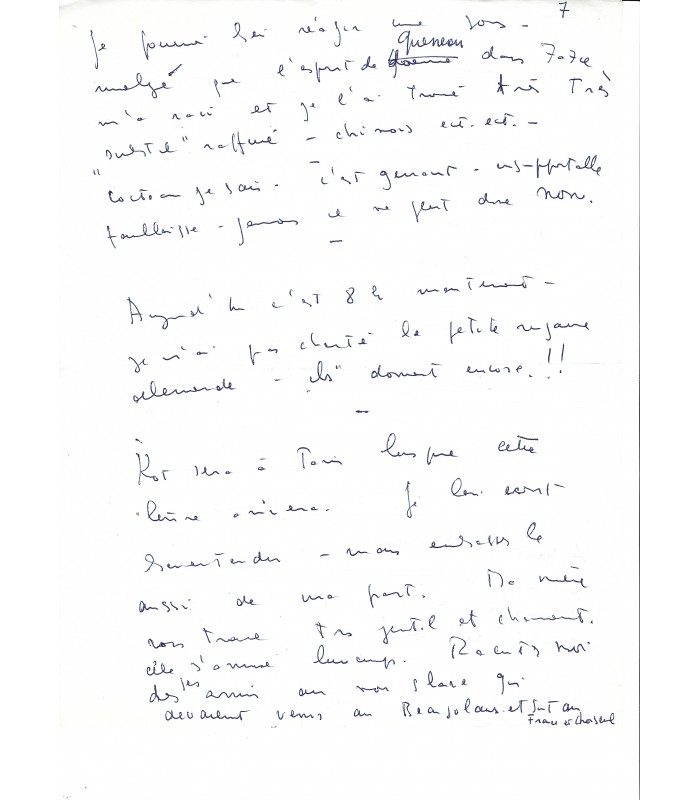 7
Je pourrai lui réagir une fois -
malgré que l'esprit de Queneau dans Zazie
m'a ravi et je l'ai trouvé très très
"subtil" raffiné - chinois ect. ect. -
"Cocteau je sais - c'est genant - insupportable
- jamais il ne peut dire non.
Aujourd'hui c'est 8 h maintenant -
je n'ai pas chanté la petite rengaine
allemande - "ils" dorment encore.!!
Kot sera à Paris lorsque cette
lettre arrivera. Je lui écrit
- mais embrasses le
aussi de ma part. Ma mère
vous trouve très gentil et charmant.
elle s'amuse beaucoup. Racontes moi
des amis ou non slave qui
devaient venir au Beaujolais et surtout
Franc et Choiseul